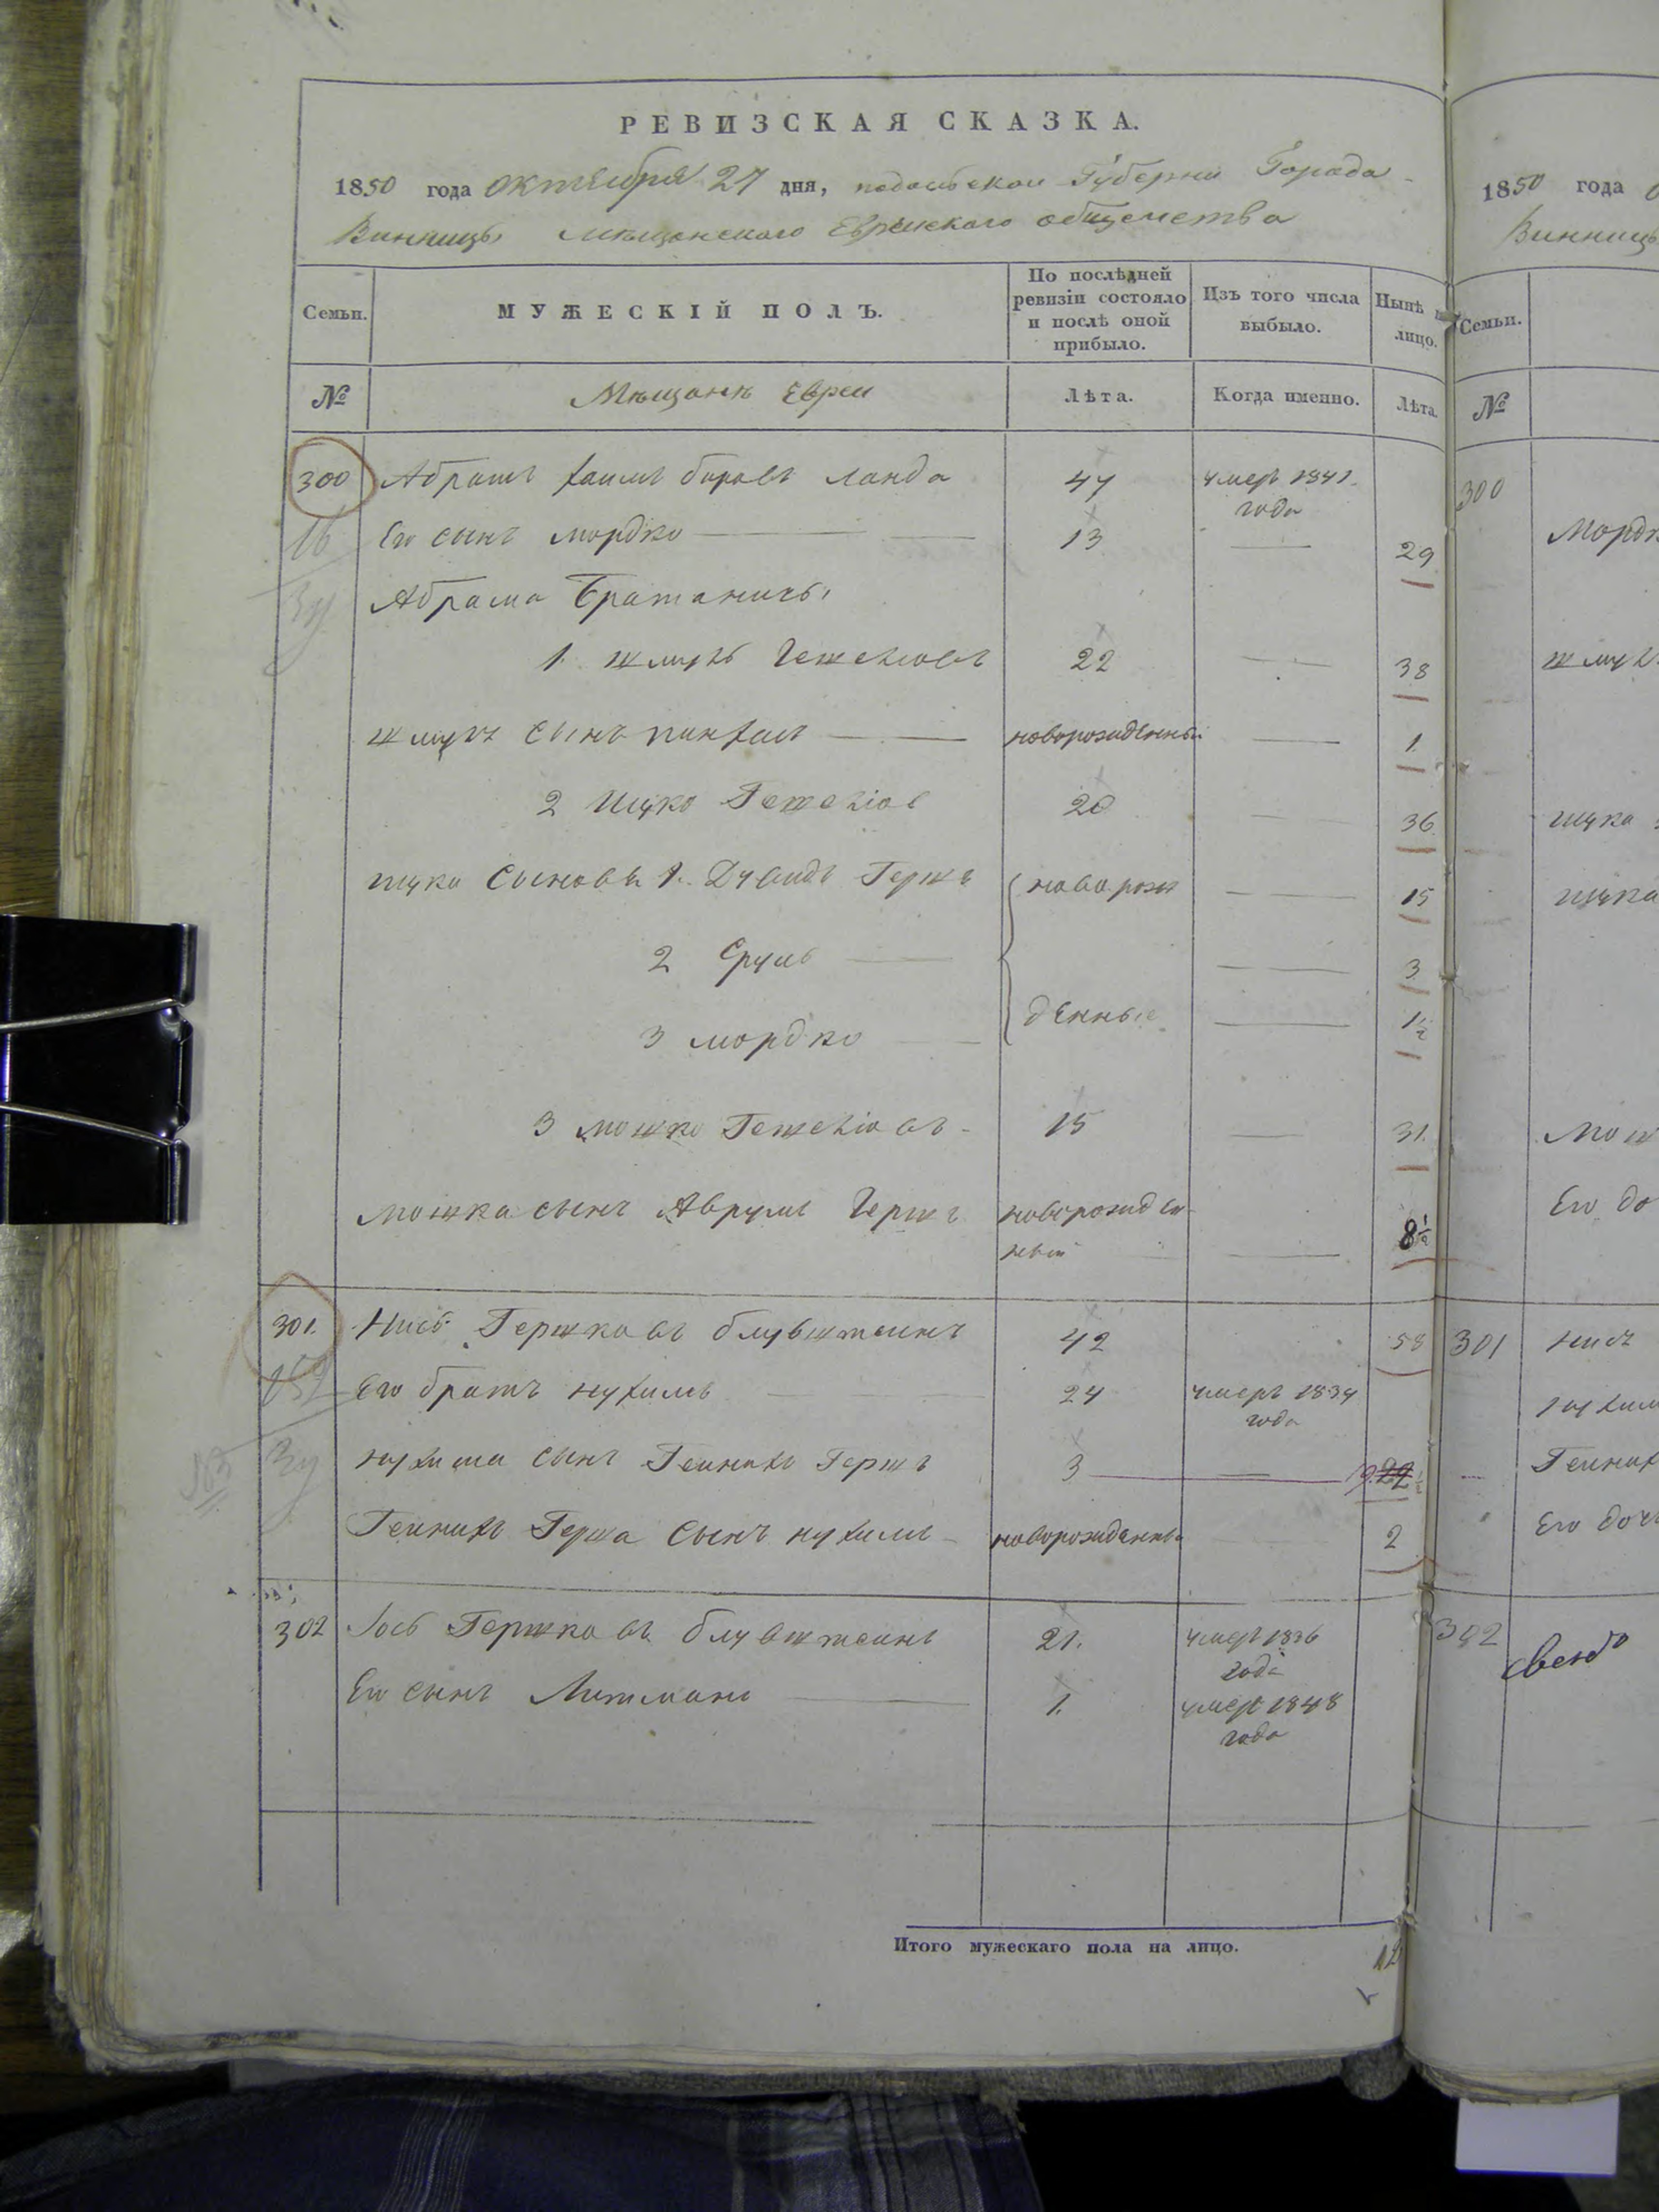 РЕВИЗСКАЯ СКАЗКА.
1850 года октября 27 дня, подольской Губерни Города
Винницы мѣщанскаго Еврейскаго общества
Семьи. МУЖЕСКІЙ ПОЛЪ. По послѣдней ревизіи состояло и послѣ оной прибыло. Изъ того числа выбыло. Нынѣ на лицо.
№ Мѣщанъ Евреи Лѣта. Когда именно. Лѣта.
300 Абрамъ хаимъ Ланда 47 умеръ 1841 года
Его сынъ мордко 13 29
Абрама Братаничъ,
1. шмуль 22 38
шмуля сынъ пинхасъ новорожденный 1
2 ицко 20 36
ицка Сыновья 1. Дувидъ Гершъ новорож 15
2 Сруль 3
3 мордко денные 1½
3 мошко 15 31
мошка сынъ Аврумъ Гершъ новорожден
ный 8½
301. Нисъ Гершковъ блувштеинъ 42 58
Его братъ нухимъ 24 умеръ 1834 года
нухима сынъ Геинихъ Гершъ 3
Геинихъ Герша Сынъ нухимъ новорожденны 2
302 Іось Гершковъ блувштеинъ 21. умеръ 1836 года
Его сынъ Литманъ 1. умеръ 1848 года
Итого мужескаго пола на лицо. 12
1850 года
Винницы
Семьи.
№
300
Мордк
шмул
ицка
ицка
Мош
Его до
301 нисъ
нухим
Геиних
Его доч
302